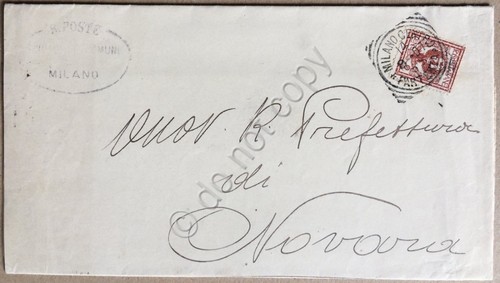 R. POSTE
MILANO
MILANO
Onor. R. Prefettura
di
Novara
© do not copy